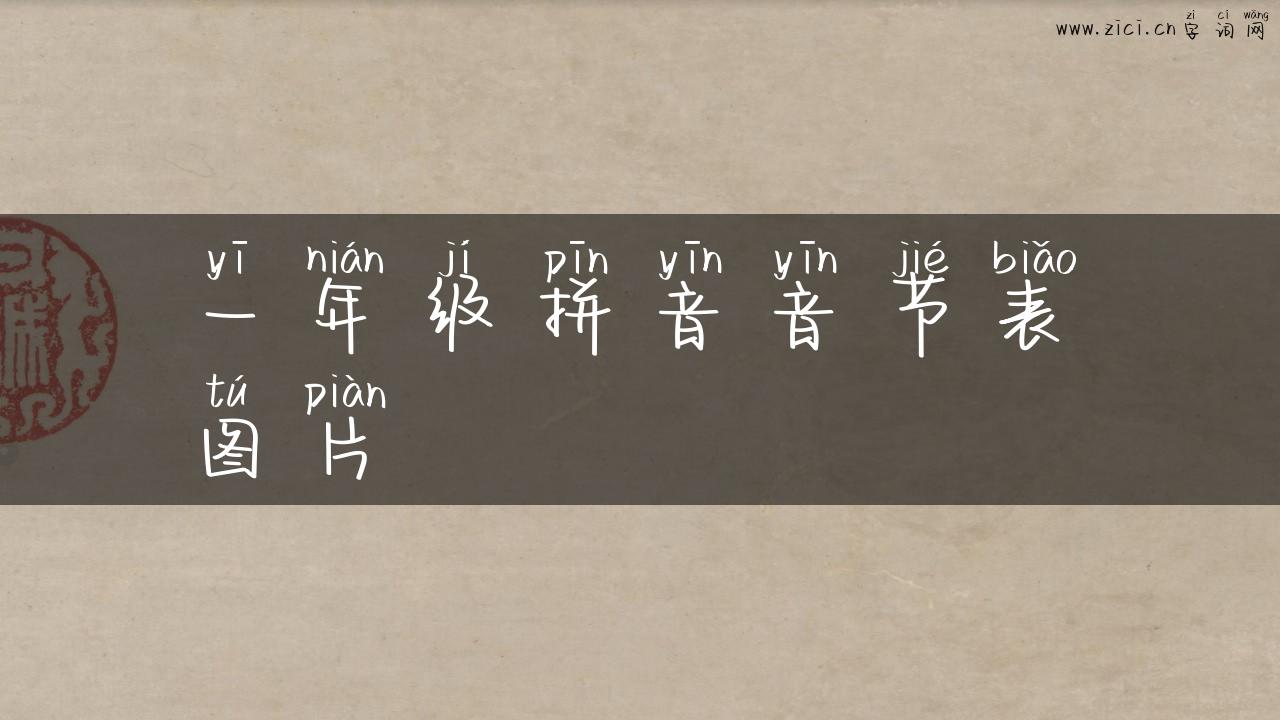 zì cí wǎng
www.zici.cn 字词网
yī nián jí pīn yīn yīn jié biǎo
一年级拼音音节表
tú piàn
图片